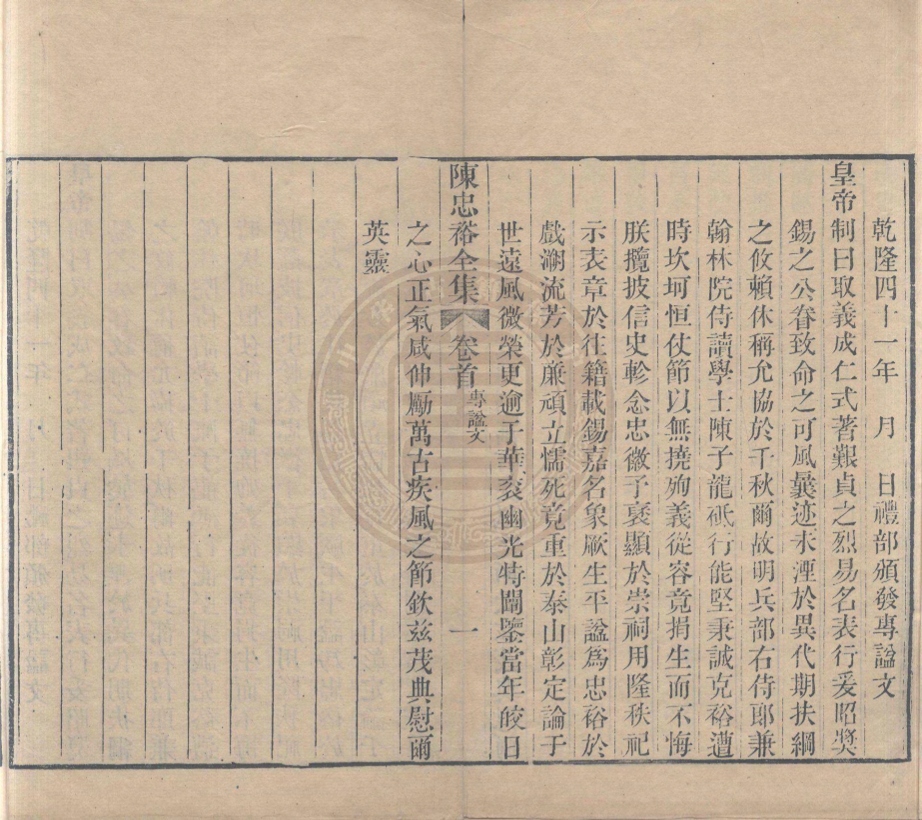 乾隆四十一年　月　日禮部頒發專諡文
皇帝制曰取義成仁式著艱貞之烈易名表行爰昭獎
錫之公眷致命之可風曩迹未湮於異代期扶綱
之攸賴休稱允協於千秋爾故明兵部右侍郎兼
翰林院侍讀學士陳子龍砥行能堅秉誠克裕遭
時坎坷恒仗節以無撓殉義從容竟捐生而不悔
朕攬披信史軫念忠徽予褒顯於崇祠用隆秩祀
示表章於往籍載錫嘉名象厥生平諡爲忠裕於
戲溯流芳於廉頑立懦死竟重於泰山彰定論于
世遠風微榮更逾于華袞幽光特闡鑒當年皎日
陳忠裕全集 卷首 專諡文 一
之心正氣咸伸勵萬古疾風之節欽兹茂典慰爾
英靈